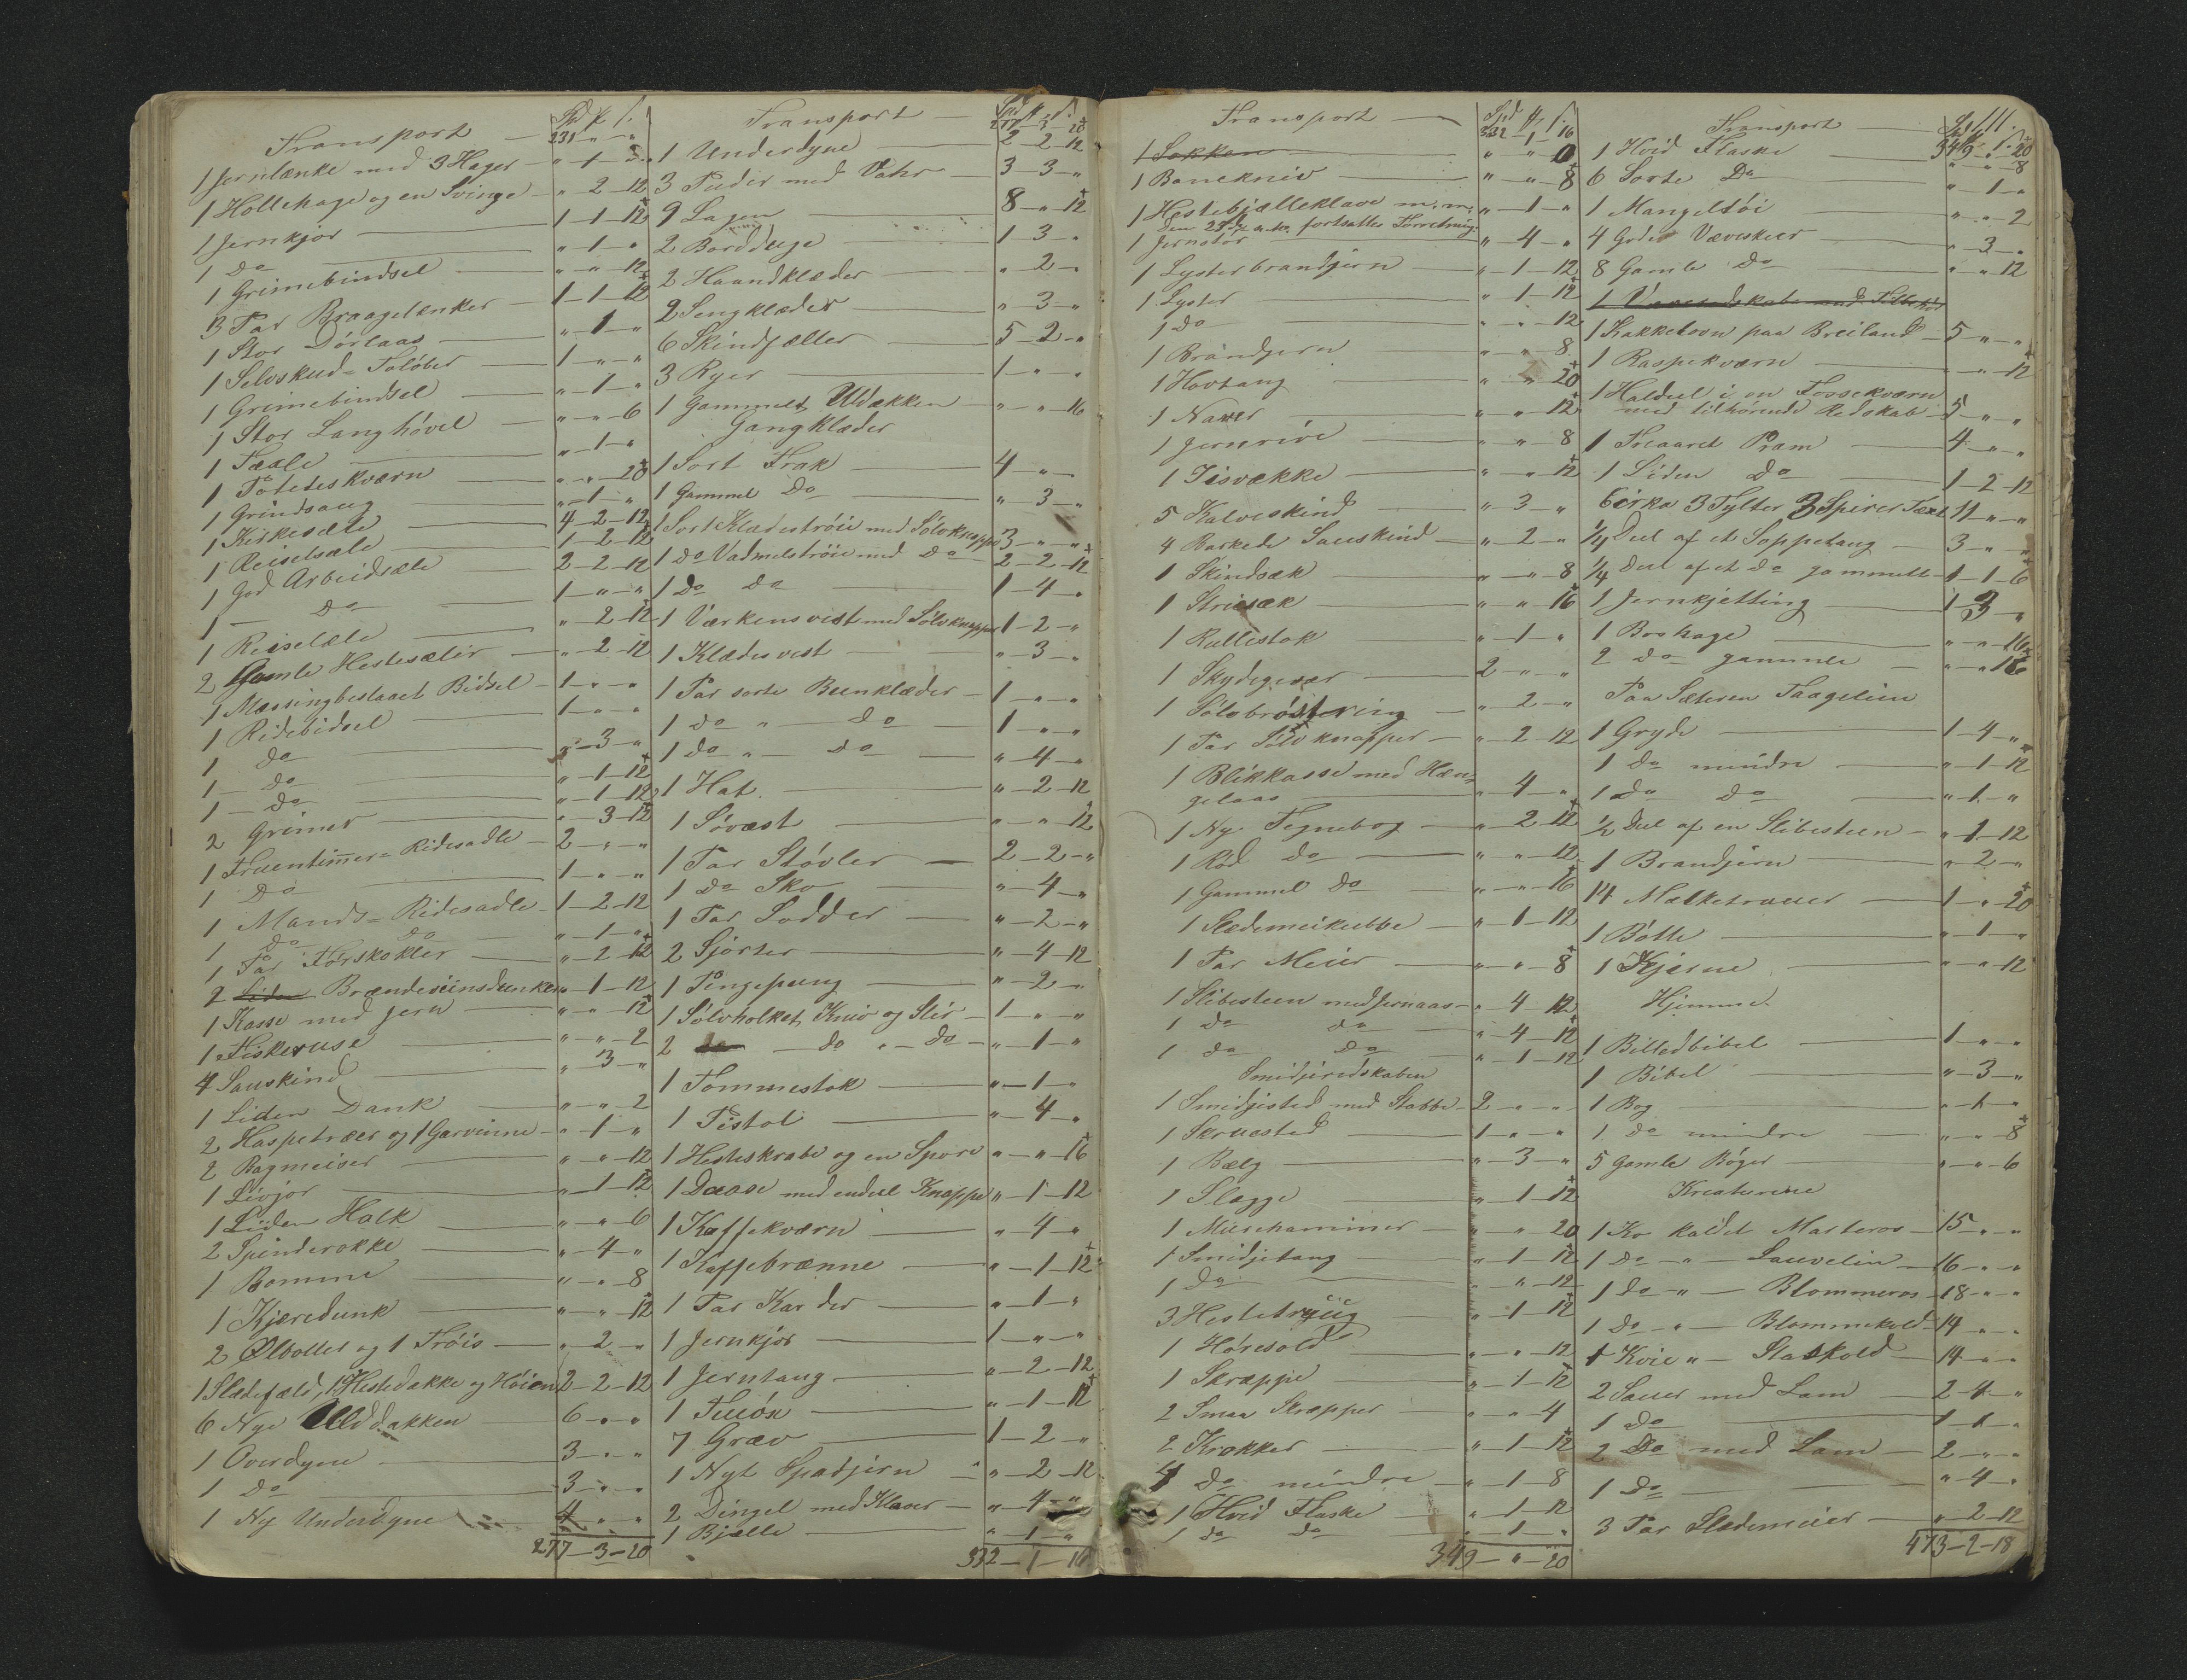 Spd # ſ.
Transport — 231 " "
1 Jernlænke med 3 Hager — " 1 "
1 Hollehage og en Svinge — " 2 12
1 Jernkjør — 1 1 12
1 Do — " 1 "
1 Grimebindsel — " " 12
3 Par Braagelænker — 1 1 12
1 Stor Dörlaas — " 1 "
1 Selvskud= Foløber — 1 " "
1 Grimebindsel — " 1 "
1 Stor Langhövel — " " 6
1 Fæle — " 1 "
1 Poteteskværn — " " 20
1 Grindsaug — " 1 "
1 Kirkesæle — 4 2 12
1 Reisesæle — 1 2 12
1 God Arbeidsæle — 2 2 12
1 — Do — 1 " "
1 Reisesæle — " 2 12
2 Gamle Hestesæler — " 2 12
1 Massingbeslaaet Bidsel — 1 " "
1 Ridebidsel — 1 " "
1 Do — " 3 "
1 — Do — " 1 12
1 — Do — " 1 12
2 Grimer — " 3 12
1 Fruentimer= Ridesadle — 2 " "
1 Do — 1 " "
1 Mands= Ridesadle — 1 2 12
1 Do Do — " 1 "
1 Par Forskokler — " 2 12
2 Liden Brændeviinsdunker — " 1 12
1 Kasse med Jern — " " 12
1 Fiskeruse — " " 2
4 Sauskind — " 3 "
1 Liden Dank — " " 2
2 Haspetræer og 1 Garvinne — " 1 "
2 Bagmeiser — " " 12
1 Livjor — " 1 12
1 Liden Halk — " " 6
2 Spinderokke — " 4 "
1 Bomme — " " 8
1 Kjæredunk — " " 12
2 Ølboller og 1 Frøis — " 2 "
1 Slædefæld, 1 Hestedække og Høien 2 2 12
6 Nye Ulddakken — 6 " "
1 Overdyne — 3 " "
1 Do — 3 " "
1 Ny Underdyne — 4 " "
277 — 3 — 20
Spd # ſ.
Transport — 277 3 20
1 Underdyne — 2 2 12
3 Puder med Vahr — 3 3 "
9 Lagen — 8 " 12
2 Bordduge — 1 3 "
2 Haandklæder — " 2 "
2 Sengklæder — " 3 "
6 Skindfæller — 5 2 "
3 Ryer — 1 " "
1 Gammelt Uldækken — " " 16
Gangklæder
1 Sort Frak — 4 " "
1 Gammel Do — " 3 "
1 Sort Klædestrøie med Sølvknapper 3 " "
1 Do Vadmelstrøie med Do — 2 2 12
1 Do Do — 1 4 "
1 Værkensvest med Sølvknapper 1 2 "
1 Klædesvest — " 3 "
1 Par sorte Buxklæder — 1 " "
1 Do " Do — 1 " "
1 Do " Do — " 4 "
1 Hat. — " 2 12
1 Søvæst — " " 12
1 Par Støvler — 2 2 "
1 Do Sko — " 4 "
1 Par Lodder — " 2 "
2 Sjorter — " 4 12
1 Pengepung — " 2 "
1 Sølvholket Kniv og Slir — 1 " "
2 — do " Do — " 1 "
1 Tommestok — " 1 "
1 Pistol — " 4 "
1 Hesteskrabe og en Spore " " 16
1 Daase med endeel Knapper " 1 12
1 Kaffekværn — " 4 "
1 Kaffebrænne — " 1 12
1 Par Karder — " 1 "
1 Jernkjør — 1 " "
1 Jerntang — " 2 12
1 Tuøx — " 1 12
7 Græv — 1 2 "
1 Nyt Spadjern — " 2 12
2 Dingel med Klaver — " 4 "
1 Bjelle — " 1 "
332 — 1 — 16
Spd # ſ.
Transport — 332 1 16
1 Sakken — " " 0
1 Banekniv — " " 8
1 Hestebjælleklave m. m. " 1 "
Den 23de a. k. fortsattes Forretning:
1 Jernstör — " 4 "
1 Lysterbrandjern — " 1 12
1 Lyster — " 1 12
1 Do — " " 12
1 Brandjern — " " 8
1 Hovtang — " " 20
1 Naver — " " 12
1 Jernrive — " " 8
1 Isvække — " " 12
5 Kalveskind — " 3 "
4 Barkede Sauskind — " 2 "
1 Skindsæk — " " 8
1 Striesæk — " " 16
1 Rullestok — " 1 "
1 Skydegevær — 2 " "
1 Sølvbrøstering — " 2 "
1 Par Sølvknapper — " 2 12
1 Blikkasse med Hæn=
gelaas — " 4 "
1 Ny Tegnebog — " 2 12
1 Röd Do — " " 12
1 Gammel Do — " " 16
1 Slædemeikubbe — " 1 12
1 Par Meier — " " 8
1 Slibesteen med Jernaas — " 4 12
1 Do Do — " 4 12
1 Do Do — " 1 12
Smidjeredskaben
1 Smidjisted med Stabbe — 2 " "
1 Skruested — 1 " "
1 Bælg — " 3 "
1 Slægge — " 1 12
1 Murehammer — " " 20
1 Smidjetang — " 1 12
1 Do — " " 12
3 Hestetryiig — " 1 12
1 Høresold — " " 12
1 Skræppe — " 1 12
2 Smaa Skræpper — " " 4
2 Krakker — " 1 12
4 Do mindre — " 1 8
1 Hvid Flaske — " 1 12
1 do do — " 1 "
349 — " — 20
111.
Spd # ſ.
Transport — 349 " 20
1 Hvid Flaske — " " 8
6 Sorte Do — " 1 "
1 Mangeltöi — " " 2
4 Gode Væveskeer — " 3 "
8 Gamle Do — " " 12
1 Kakkelovn paa Breiland — 5 " "
1 Raspekværn — " " 12
1 Haldeel i en Fossekværn
med tilhørende Redskab — 5 " "
1 Treaaret Pram — 4 " "
1 Liden Do — 1 2 12
Cirka 3 Tylter 3 Spirer Taxt 11 " "
1/4 Deel af et Soppetaug — 3 " "
1/4 Deel af et Do gammelt — 1 1 6
1 Jernkjetting — 1 3 "
1 Boshage — " " 16
2 Do gammle — " " 16
Paa Sæteren Taagelien
1 Gryde — 1 4 "
1 Do mindre — " 1 12
1 Do Do — " 1 "
1/2 Deel af en Slibesteen — " 1 12
1 Brandjern — " 2 "
14 Melketrauer — 1 " 20
1 Bötte — " 1 "
1 Kjerne — " " 12
Hjemme.
1 Billedbibel — 1 " "
1 Bibel — " 3 "
1 Bog — " 1 "
1 Do mindre — " " 8
5 Gamle Bøger — " " 6
Kreaturene
1 Ko kaldet Masteros — 15 " "
1 Do — " — Sauvelin — 16 " "
1 Do — " — Blommeros — 18 " "
1 Do — " — Blommekold — 14 " "
1 Kvie " — Staskold — 14 " "
2 Sauer med Lam — 2 4 "
1 Do — 1 1 "
2 Do med Lam — 2 " "
1 Do — " 4 "
3 Par Slædemeier — " 2 12
473 — 2 — 18